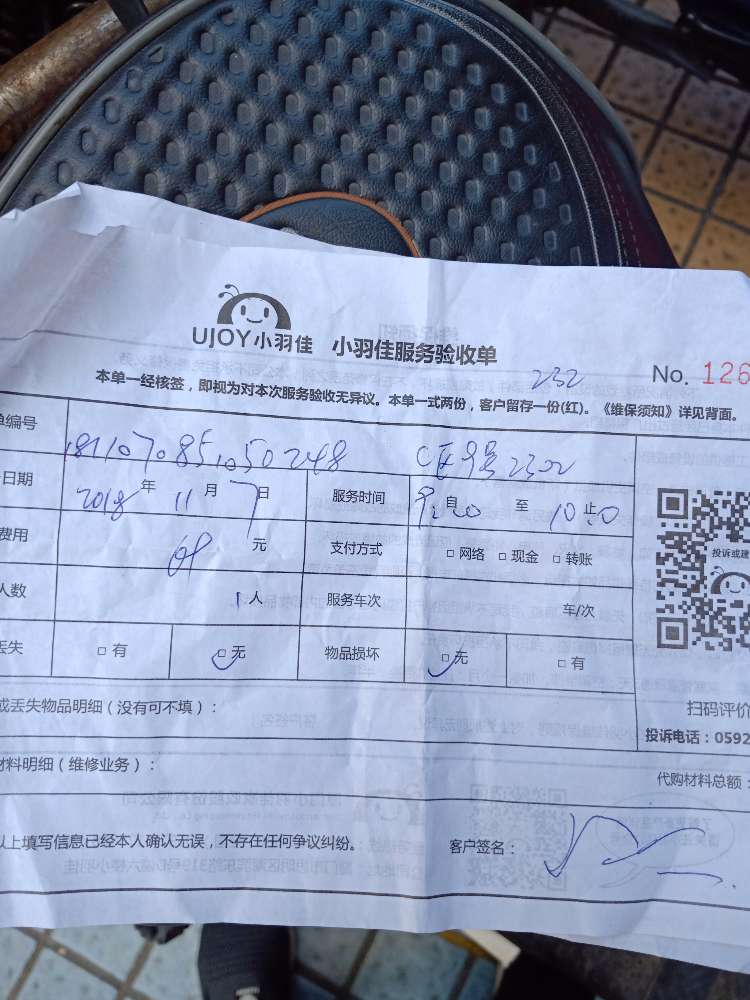 UJOY小羽佳 小羽佳服务验收单
No. 126
232
本单一经核签，即视为对本次服务验收无异议。本单一式两份，客户留存一份(红)。《维保须知》详见背面。
单编号 1811070851050248 2302
日期 2018年11月7日 服务时间 9:00自 至 10:00止
费用 元 支付方式 □网络 □现金 □转账
人数 1人 服务车次 车/次
丢失 □有 □无 物品损坏 □无 □有
投诉或建
扫码评价
或丢失物品明细（没有可不填）：
投诉电话：0592
材料明细（维修业务）：
代购材料总额：
以上填写信息已经本人确认无误，不存在任何争议纠纷。 客户签名：